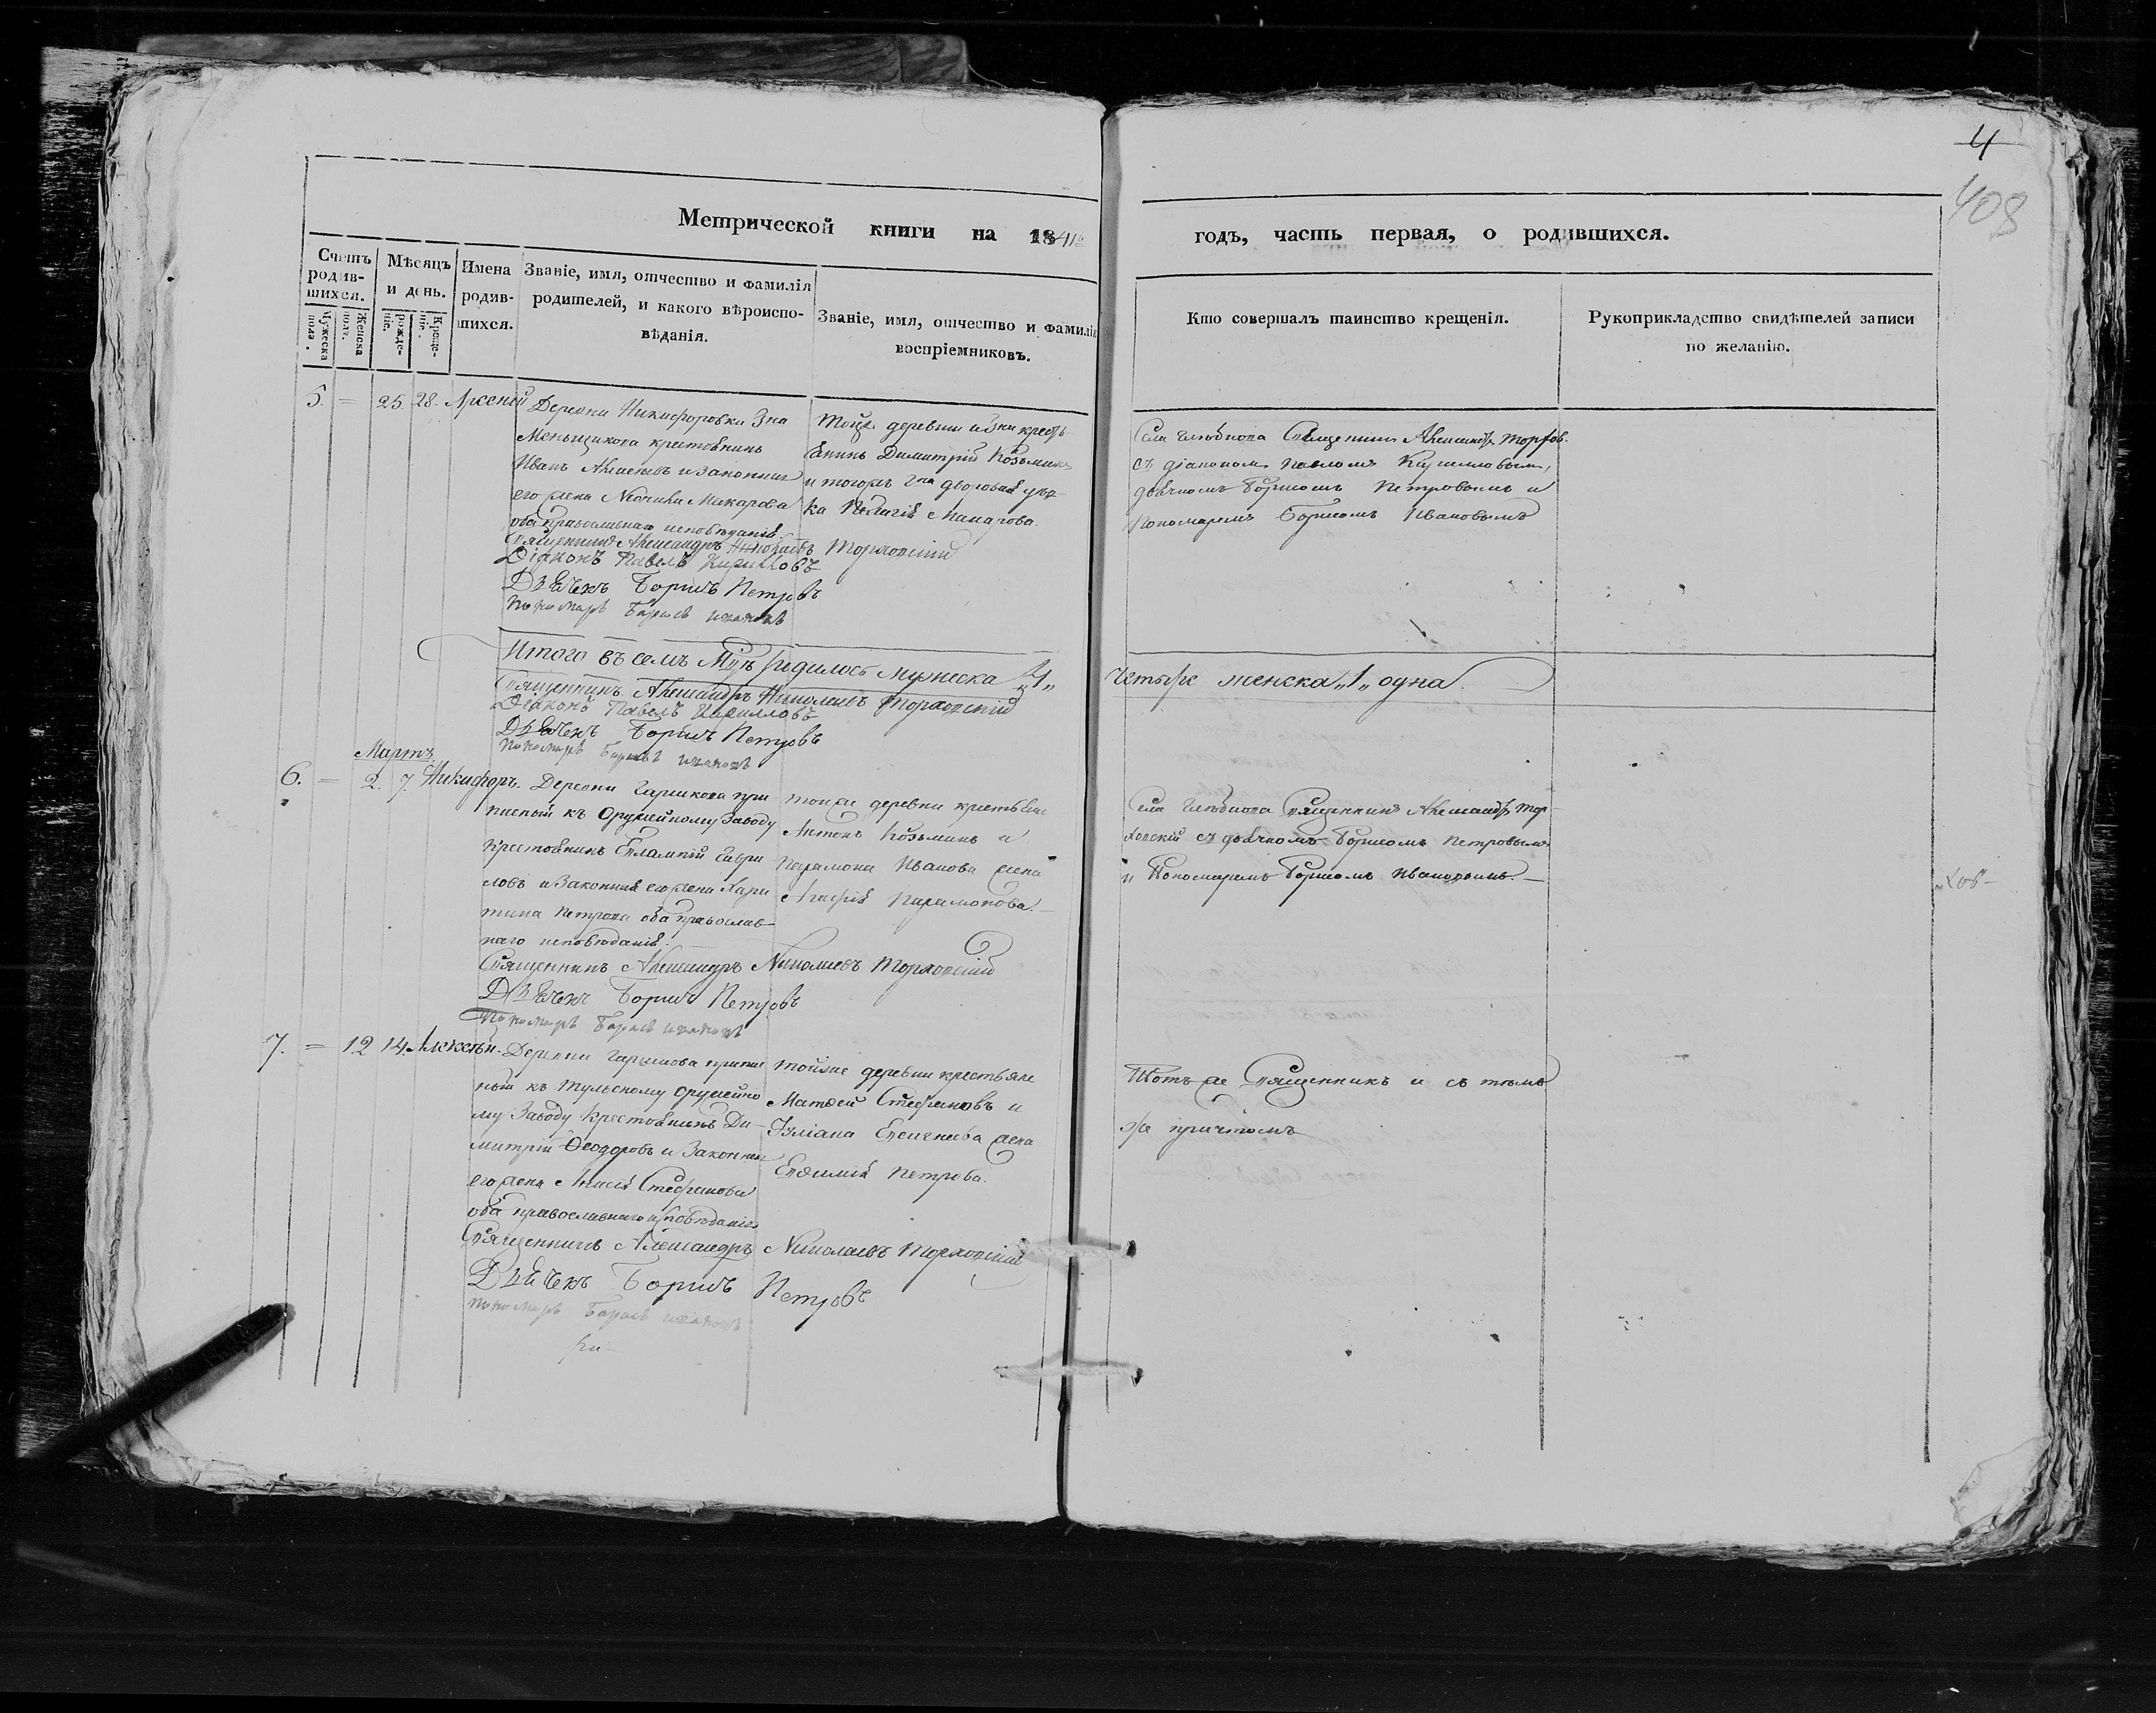 4
408
Метрической книги на 1841й
годъ, часть первая, о родившихся.
Счетъ родив-
шихся.
Мужеска пола.
Женска пола.
Мѣсяцъ и день.
рожде-
нія.
Креще-
нія.
Имена родив-
шихся.
Званіе, имя, отчество и фамилія
родителей, и какого вѣроиспо-
вѣданія.
Званіе, имя, отчество и фамилія
воспріемниковъ.
Кто совершалъ таинство крещенія.
Рукоприкладство свидѣтелей записи
по желанію.
5. = 25. 28. Арсеній
Деревни Никифоровки Гна
Меньщикова крестьянинъ
Иванъ Алексѣевъ и законная
его жена Макарова
оба православнаго исповѣданія.
Тойже деревни крестья-
нинъ Димитрій Козьминъ
и тогожъ Гна дворовая дѣв-
ка Пелагія Макарова.
Священникъ Александръ Николаевъ Торховскій
Діаконъ Павелъ Кирилловъ
Дьячекъ Борисъ Петровъ
Пономарь Борисъ Ивановъ
Села Священникъ Александръ Торхов.
съ діакономъ Павломъ Кирилловымъ,
дьячкомъ Борисомъ Петровымъ и
Пономаремъ Борисомъ Ивановымъ
Итого въ семъ Мцѣ родилось мужеска „4„
четыре женска „1„ одна.
Священникъ Александръ Николаевъ Торховскій
Діаконъ Павелъ Кирилловъ
Дьячекъ Борисъ Петровъ
Пономарь Борисъ Ивановъ
Мартъ
6. = 2. 7. Никифоръ.
Деревни при
писный къ Оружейному Заводу
Крестьянинъ Евлампій Гаври
ловъ и Законная его жена Хари
тина Петрова оба православ
наго исповѣданія.
тойже деревни крестьянинъ
Антонъ Козьминъ и
Парамона Иванова жена
Агафія Парамонова.
Священникъ Александръ Николаевъ Торховскій
Дьячекъ Борисъ Петровъ
Пономарь Борисъ Ивановъ
Села Священникъ Александръ Тор-
ховскій съ дьячкомъ Борисомъ Петровымъ
и Пономаремъ Борисомъ Ивановымъ.
7. = 12 14. Алексѣй.
Деревни припис
ный къ Тульскому Оружейно
му Заводу Крестьянинъ Ди-
митрій Ѳеодоровъ и Законная
его жена Стефанова
оба православнаго исповѣданія
Тойже деревни крестьяне
Матвей Стефановъ и
Іуліана жена
Евдокія Петрова.
Священникъ Александръ Николаевъ Торховскій
Дьячекъ Борисъ Петровъ
Пономарь Борисъ Ивановъ
Тотъ же Священникъ и съ тѣмъ
же причтомъ